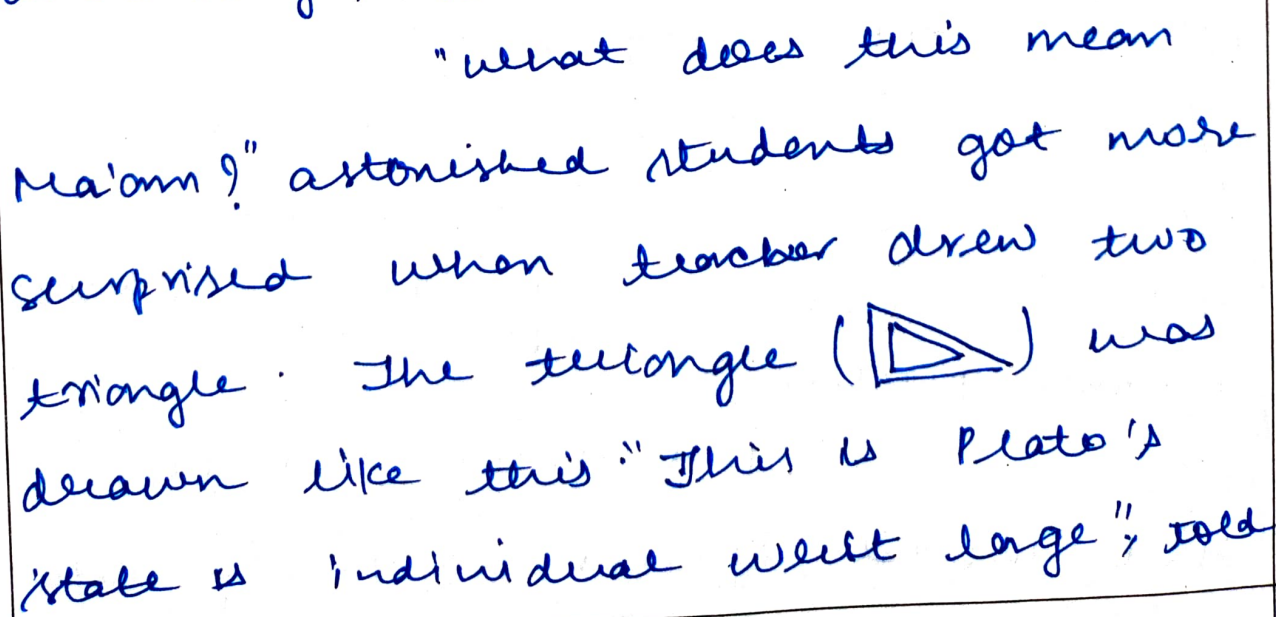 "What does this mean
Ma'am?" astonished students got more
surprised when teacher drew two
triangle. The triangle ( ) was
drawn like this. "This is Plato's
state is individual writ large", told